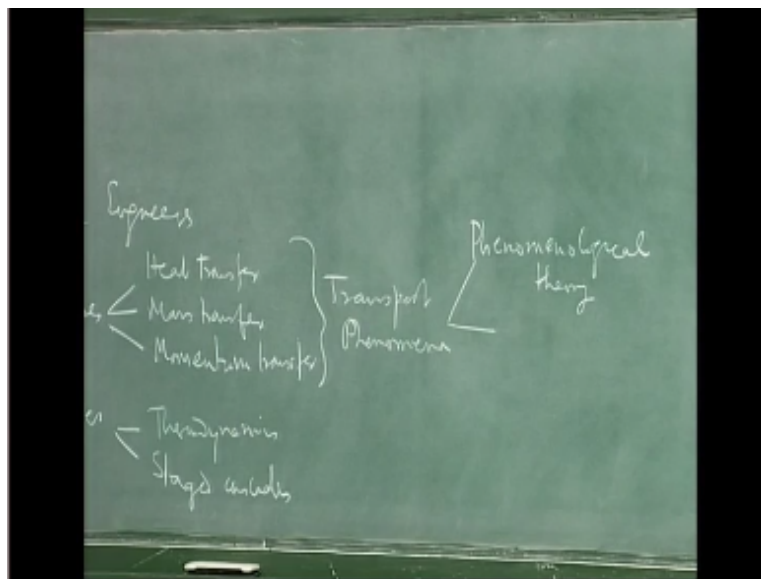 Engineers
Heat Transfer
Mass transfer
Momentum transfer
Transport
Phenomena
Phenomenological
theory
Thermodynamics
Staged cascades